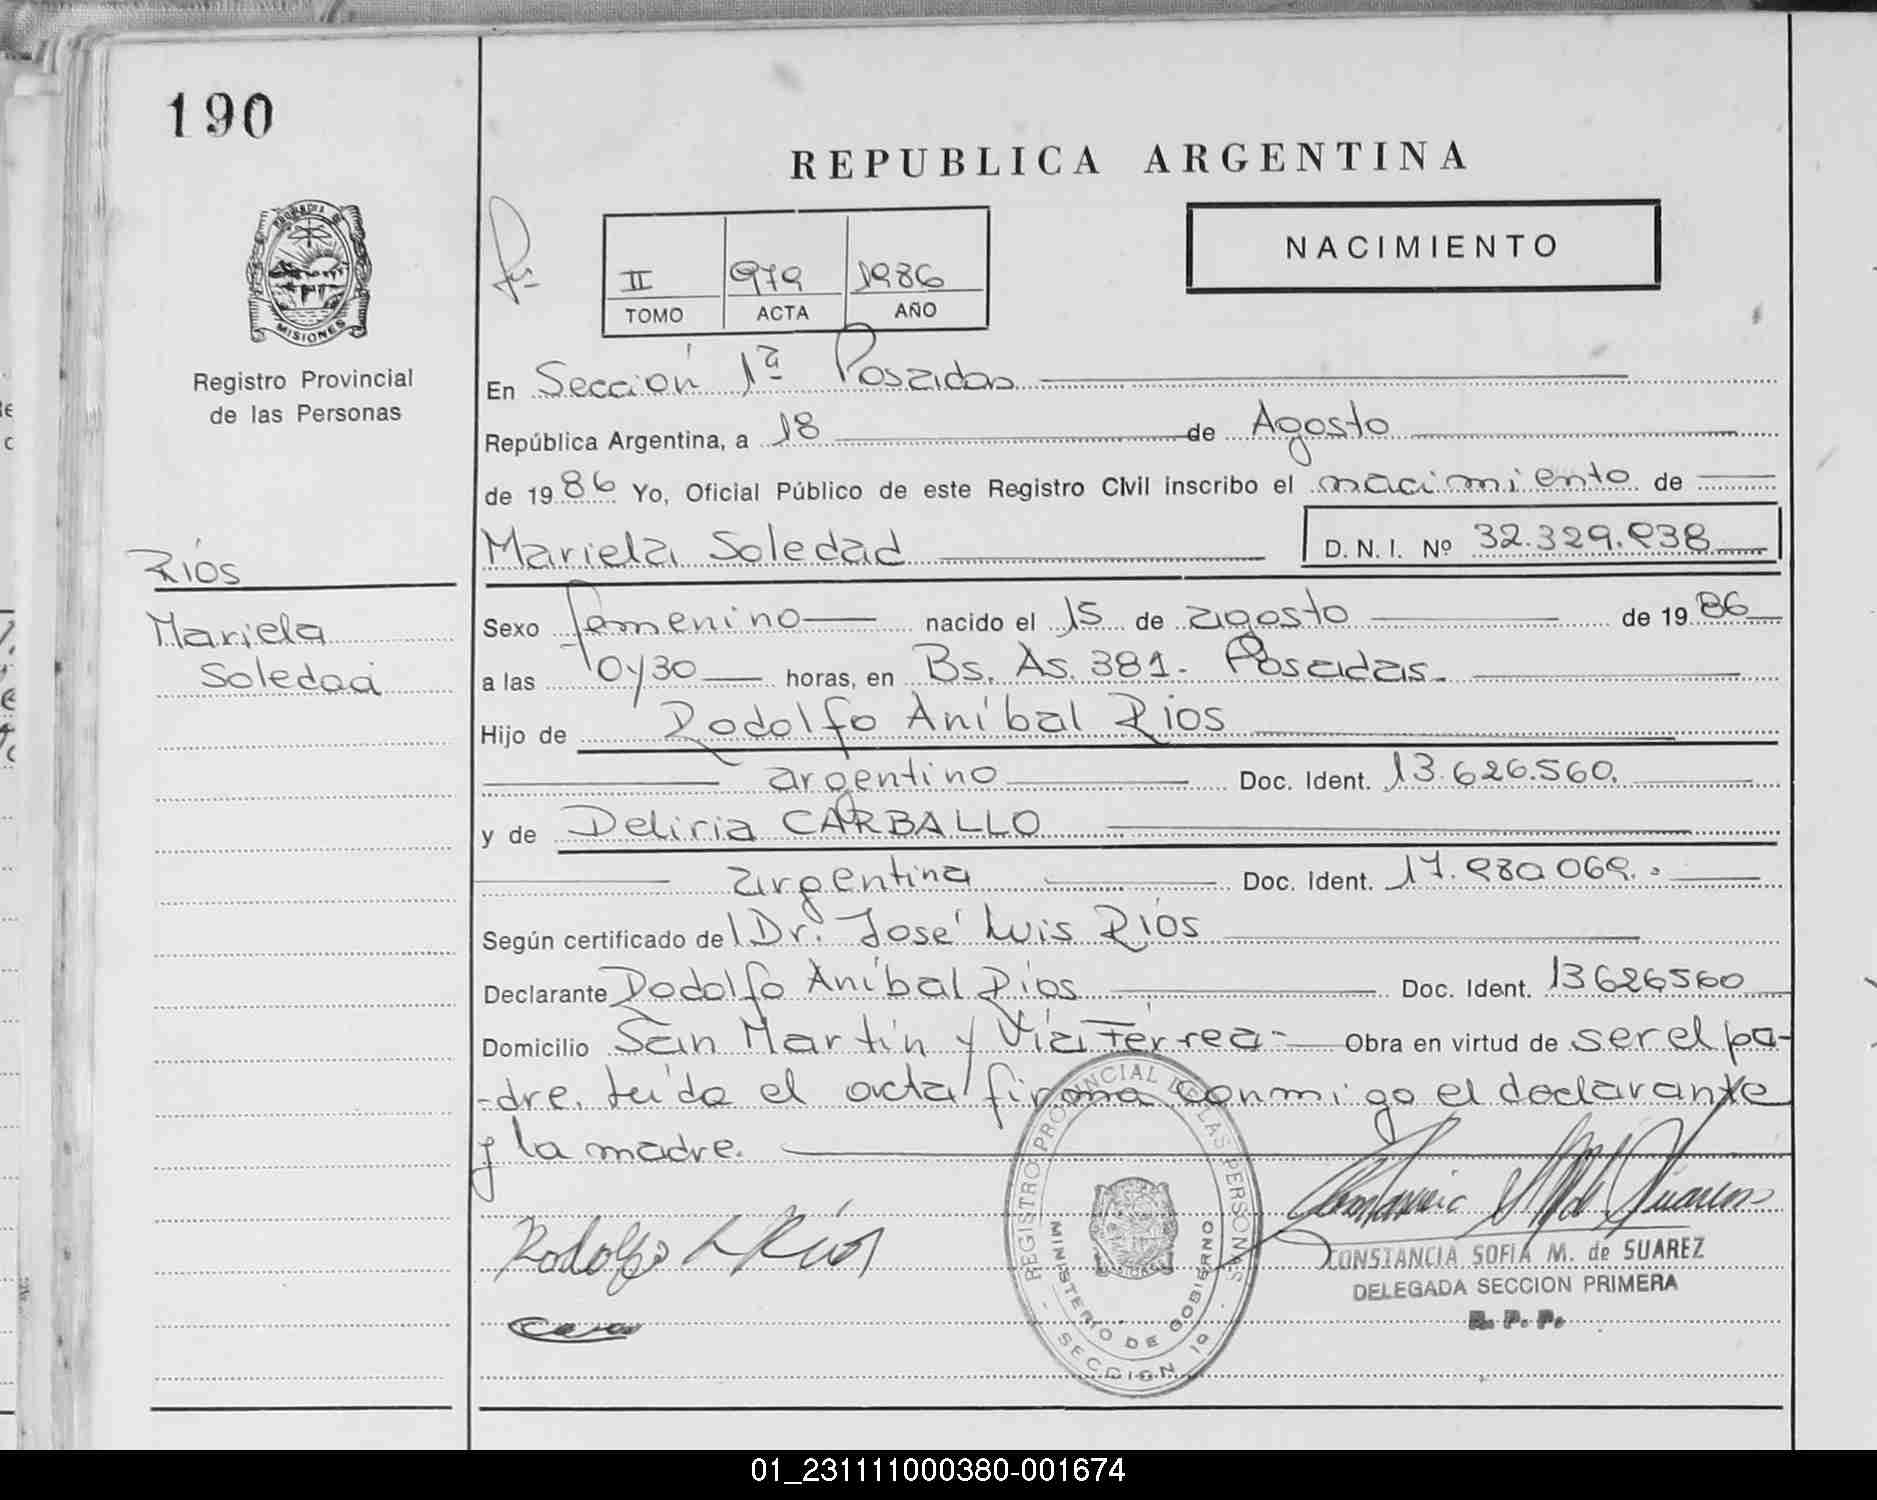 190
REPUBLICA ARGENTINA
NACIMIENTO
II 979 1986
TOMO ACTA AÑO
MISIONES
Registro Provincial
de las Personas
En Sección 1ª Posadas
República Argentina, a 18 de Agosto
de 1986 Yo, Oficial Público de este Registro Civil inscribo el nacimiento de
Mariela Soledad D. N. I. Nº 32.329.938
Ríos
Mariela
Soledad
Sexo femenino nacido el 15 de agosto de 1986
a las 0y30 horas, en Bs. As. 381- Posadas.
Hijo de Rodolfo Aníbal Rios
argentino Doc. Ident. 13.626.560.
y de Deliria CARBALLO
argentina Doc. Ident. 17.980069.
Según certificado del Dr. José Luis Ríos
Declarante Rodolfo Aníbal Rios Doc. Ident. 13626560
Domicilio San Martín y Vía Férrea- Obra en virtud de ser el pa-
-dre. Leída el acta firma conmigo el declarante
y la madre.
REGISTRO PROVINCIAL DE LAS PERSONAS
MINISTERIO DE GOBIERNO
SECCION 1º
Rodolfo A Rios
CONSTANCIA SOFIA M. de SUAREZ
DELEGADA SECCION PRIMERA
R. P. P.
01_231111000380-001674